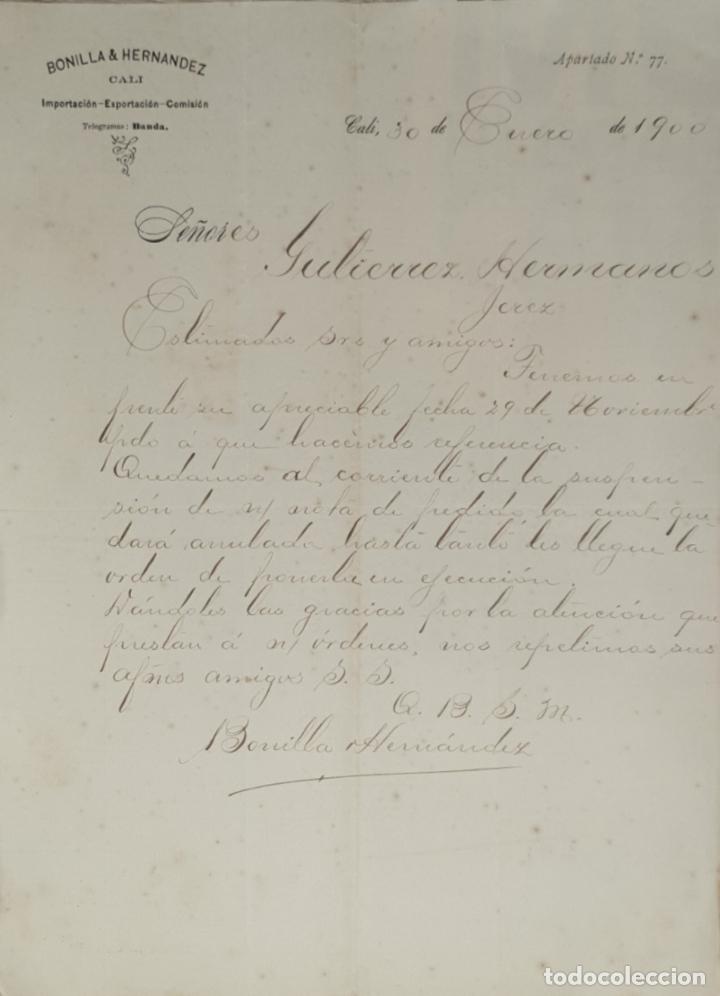 BONILLA & HERNANDEZ
CALI
Importación-Exportación-Comisión
Telegramas: Banda.
Apartado N.º 77.
Cali, 30 de Enero de 1900
Señores
Gutierrez Hermanos
Jerez
Estimados Srs y amigos:
Tenemos en
frente su apreciable fecha 29 de Noviembre
ppdo á que hacemos referencia.
Quedamos al corriente de la suspen-
sión de n/ nota de pedido, la cual que
dará anulada hasta tanto les llegue la
orden de ponerla en ejecución.
Dándoles las gracias por la atención que
prestan á n/ órdenes, nos repetimos sus
afmos amigos S. S.
Q. B. S. M.
Bonilla & Hernández
todocoleccion